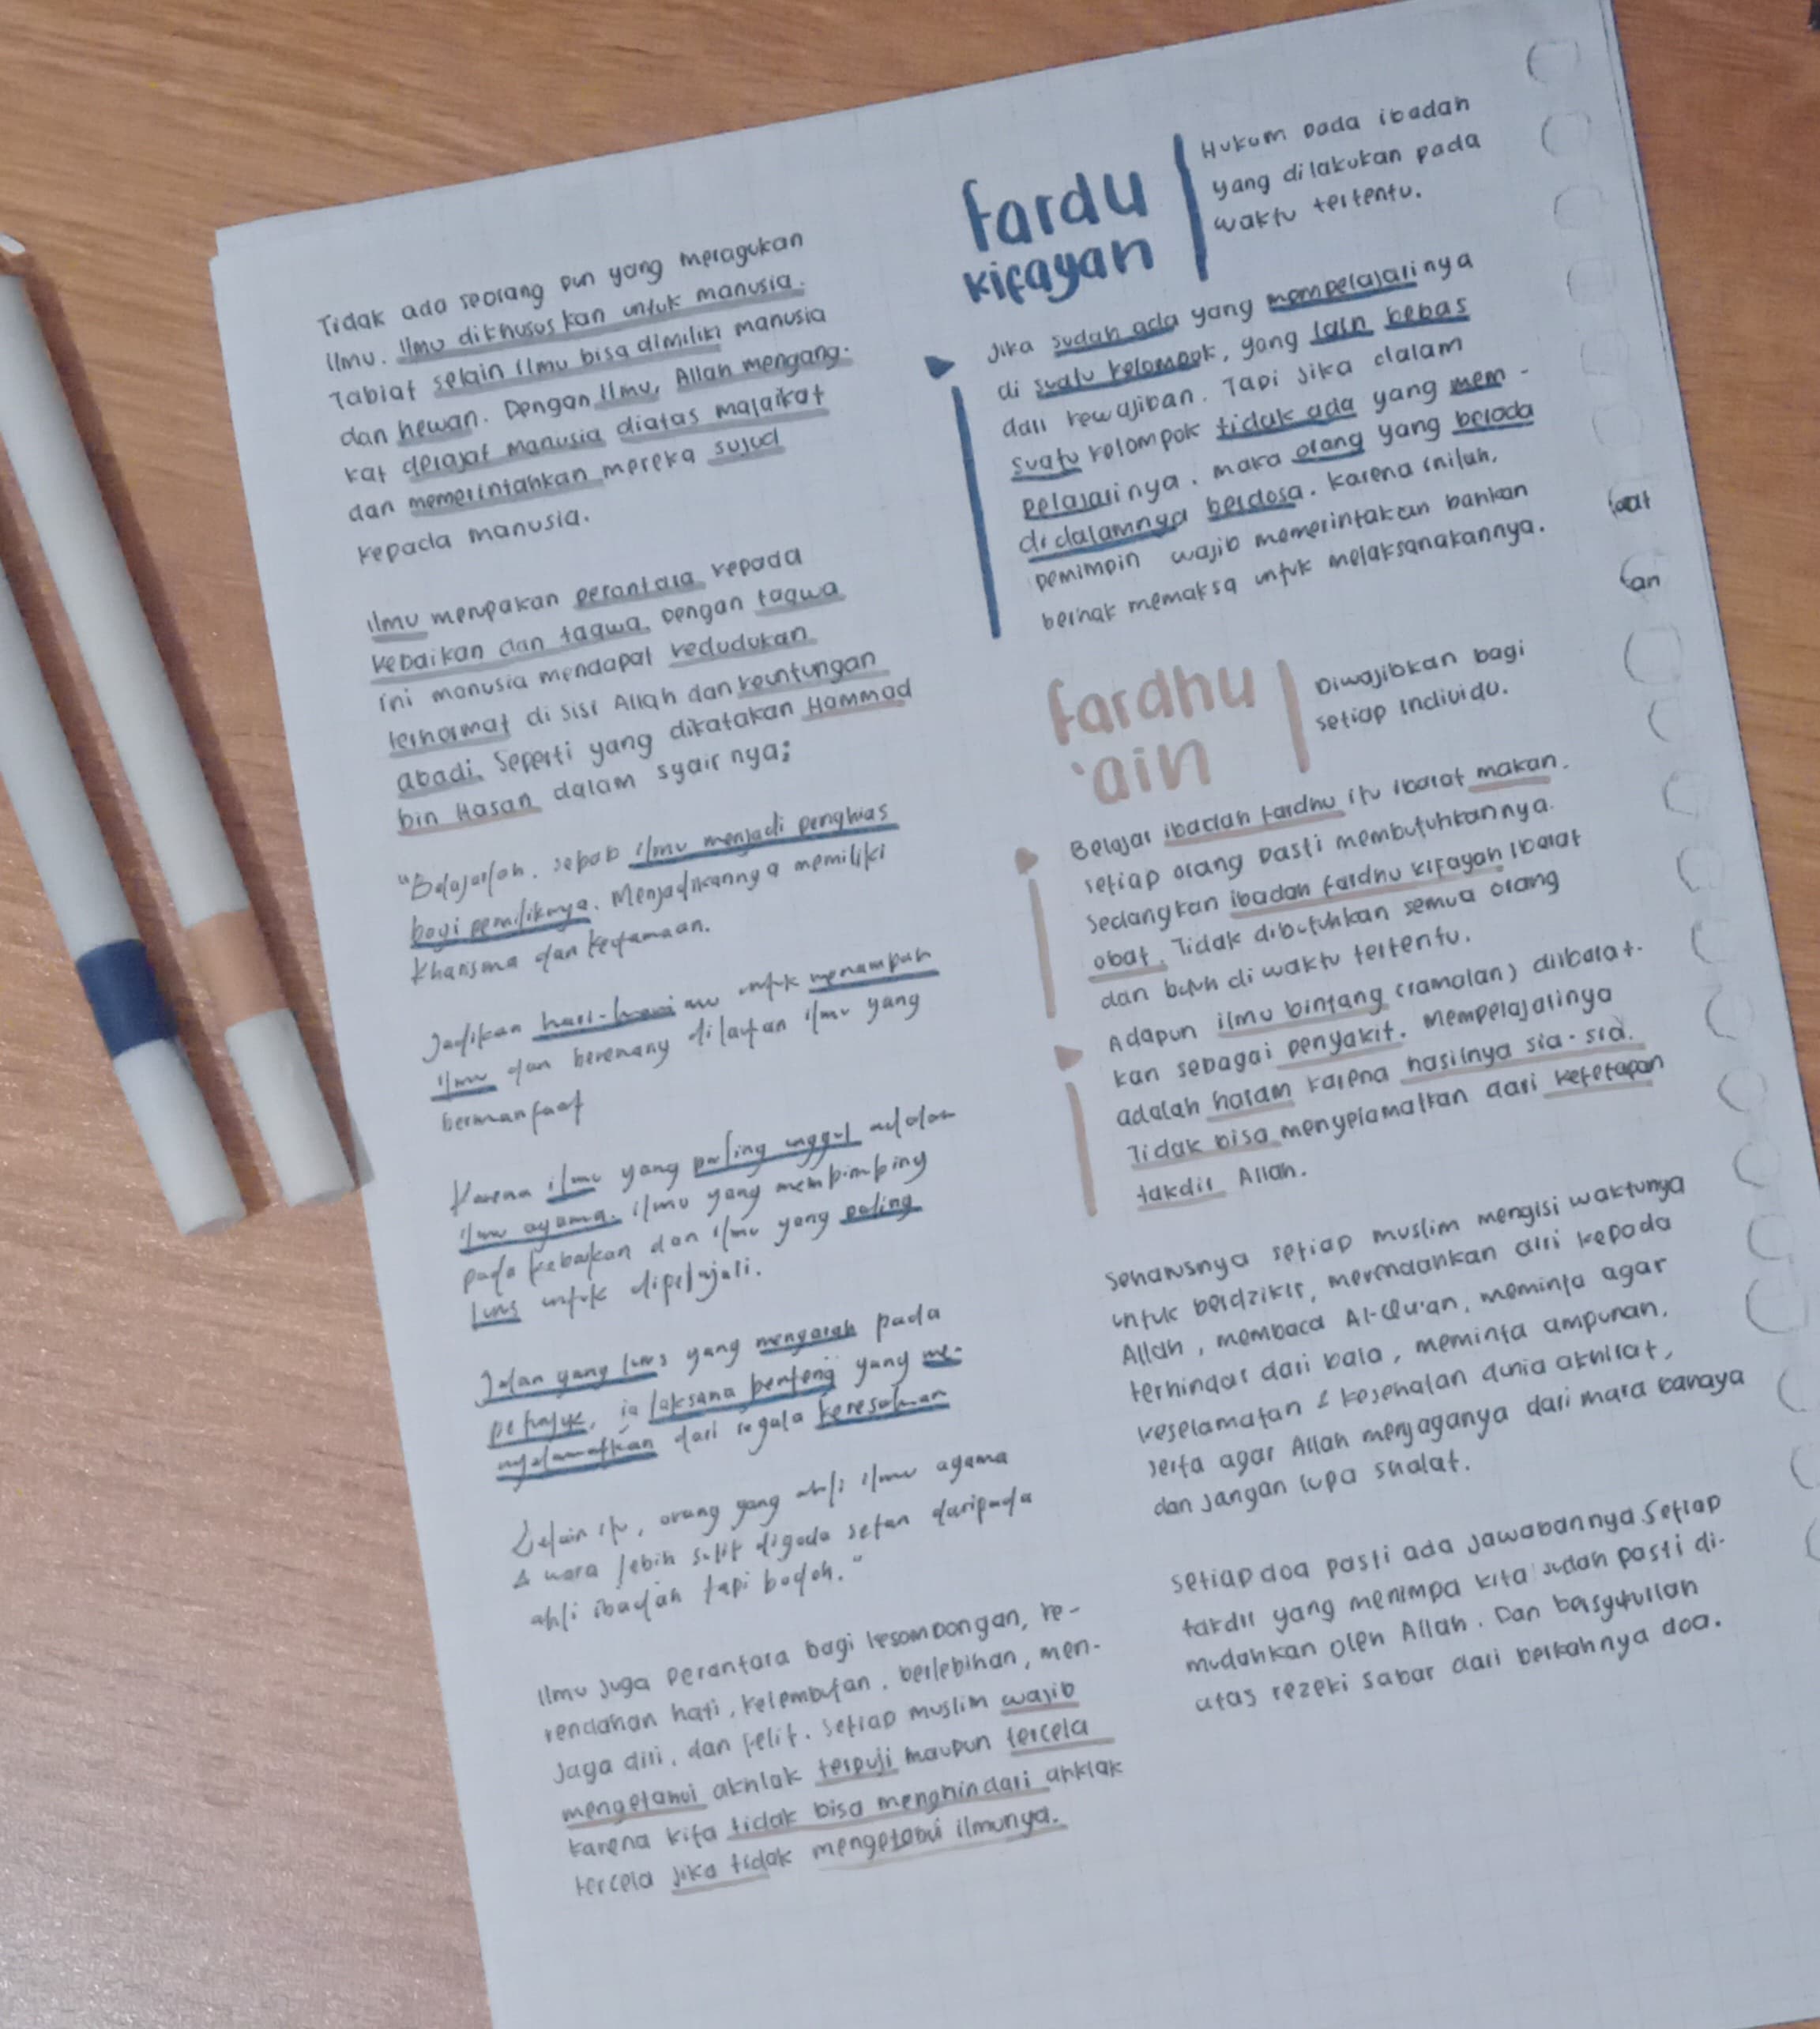 Tidak ada seorang pun yang meragukan
ilmu. Ilmu dikhususkan untuk manusia.
Tabiat selain ilmu bisa dimiliki manusia
dan hewan. Dengan ilmu, Allah mengang-
kat derajat manusia diatas malaikat
dan memerintahkan mereka sujud
kepada manusia.
Ilmu merupakan perantara kepada
kebaikan dan taqwa. Dengan taqwa
ini manusia mendapat kedudukan
terhormat di sisi Allah dan keuntungan
abadi. Seperti yang dikatakan Hammad
bin Hasan dalam syair nya;
"Belajarlah. sebab ilmu menjadi penghias
bagi pemiliknya. Menjadikannya memiliki
kharisma dan keutamaan.
Jadikan hari-hari mu untuk menampah
ilmu dan berenang dilautan ilmu yang
bermanfaat
Karena ilmu yang paling unggul adalah
ilmu agama. ilmu yang membimbing
pada kebaikan dan ilmu yang paling
lurus untuk dipelajari.
Jalan yang lurus yang mengarah pada
petunjuk, ia laksana benteng yang me-
nyelamatkan dari segala keresahan
Selain itu, orang yang ahli ilmu agama
& wara lebih sulit digoda setan daripada
ahli ibadah tapi bodoh."
Ilmu juga perantara bagi kesombongan, ke-
rendahan hati, kelembutan, berlebihan, men-
jaga diri, dan pelit. Setiap muslim wajib
mengetahui akhlak terpuji maupun tercela
karena kita tidak bisa menghindari ahklak
tercela jika tidak mengetahui ilmunya.
fardu
kifayah
Hukum pada ibadah
yang dilakukan pada
waktu tertentu.
Jika sudah ada yang mempelajarinya
di suatu kelompok, yang lain bebas
dari kewajiban. Tapi jika dalam
suatu kelompok tidak ada yang mem-
pelajarinya. maka orang yang berada
didalamnya berdosa. Karena inilah,
pemimpin wajib memerintakan bahkan
berhak memaksa untuk melaksanakannya.
fardhu
'ain
Diwajibkan bagi
setiap individu.
Belajar ibadah fardhu itu ibarat makan.
setiap orang pasti membutuhkannya.
Sedangkan ibadah fardhu kifayah ibarat
obat. Tidak dibutuhkan semua orang
dan butuh di waktu tertentu.
Adapun ilmu bintang (ramalan) diibarat-
kan sebagai penyakit. Mempelajarinya
adalah haram karena hasilnya sia-sia.
Tidak bisa menyelamatkan dari ketetapan
takdir Allah.
Seharusnya setiap muslim mengisi waktunya
untuk berdzikir, merendahkan diri kepada
Allah, membaca Al-Qur'an, meminta agar
terhindar dari bala, meminta ampunan,
keselamatan & kesehatan dunia akhirat,
serta agar Allah menjaganya dari mara bahaya
dan jangan lupa shalat.
Setiap doa pasti ada jawabannya. Setiap
takdir yang menimpa kita sudah pasti di-
mudahkan oleh Allah. Dan bersyukurlah
atas rezeki sabar dari berkahnya doa.
aat
an